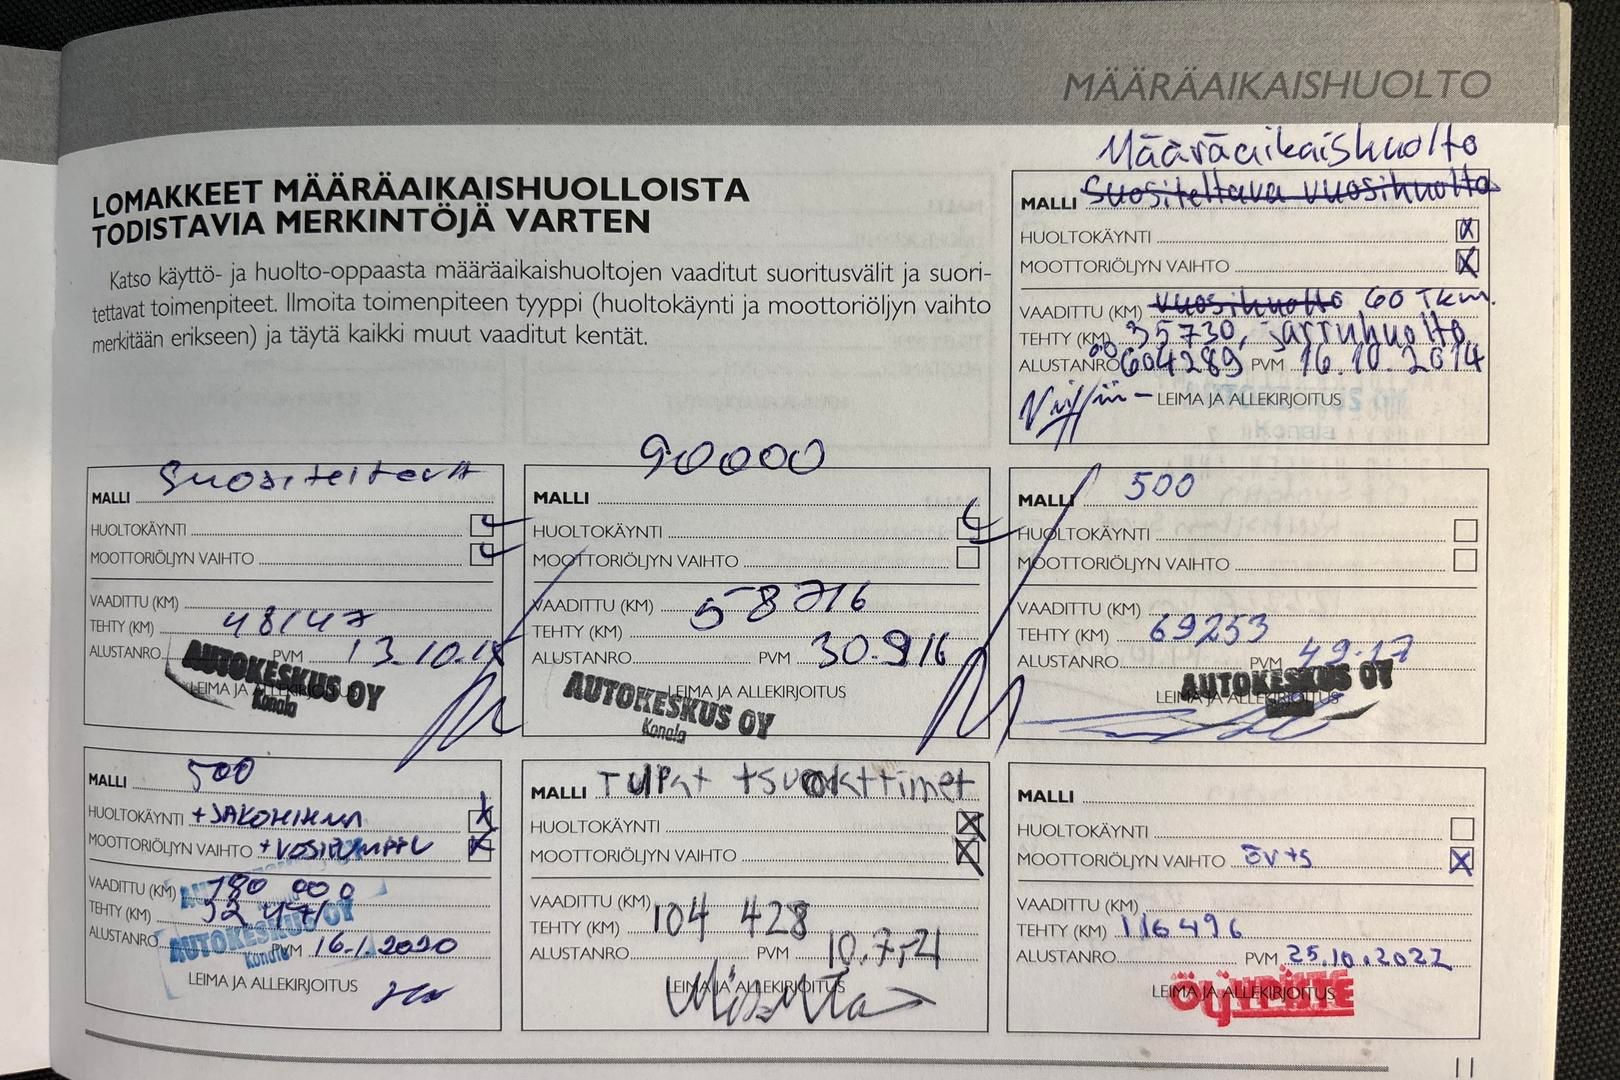 MÄÄRÄAIKAISHUOLTO
LOMAKKEET MÄÄRÄAIKAISHUOLLOISTA
TODISTAVIA MERKINTÖJÄ VARTEN
Katso käyttö- ja huolto-oppaasta määräaikaishuoltojen vaaditut suoritusvälit ja suori-
tettavat toimenpiteet. Ilmoita toimenpiteen tyyppi (huoltokäynti ja moottoriöljyn vaihto
merkitään erikseen) ja täytä kaikki muut vaaditut kentät.
Määräaikaishuolto
MALLI Suositeltava vuosihuolto
HUOLTOKÄYNTI X
MOOTTORIÖLJYN VAIHTO X
VAADITTU (KM) vuosihuolto 60 Tkm.
TEHTY (KM) 35730, jarruhuolto
ALUSTANRO 00604289 PVM 16.10.2014
LEIMA JA ALLEKIRJOITUS
MALLI Suositeltava
HUOLTOKÄYNTI
MOOTTORIÖLJYN VAIHTO
VAADITTU (KM)
TEHTY (KM) 48147
ALUSTANRO PVM 13.10.15
LEIMA JA ALLEKIRJOITUS
AUTOKESKUS OY
Konala
90000
MALLI
HUOLTOKÄYNTI
MOOTTORIÖLJYN VAIHTO
VAADITTU (KM) 58716
TEHTY (KM)
ALUSTANRO PVM 30.9.16
LEIMA JA ALLEKIRJOITUS
AUTOKESKUS OY
Konala
MALLI 500
HUOLTOKÄYNTI
MOOTTORIÖLJYN VAIHTO
VAADITTU (KM)
TEHTY (KM) 69253
ALUSTANRO PVM 4.9.17
AUTOKESKUS OY
LEIMA JA ALLEKIRJOITUS
MALLI 500
HUOLTOKÄYNTI +JAKOHIHNA X
MOOTTORIÖLJYN VAIHTO +VESIPUMPPU X
VAADITTU (KM) 180 000
TEHTY (KM)
ALUSTANRO PVM 16.1.2020
AUTOKESKUS OY
Konala
LEIMA JA ALLEKIRJOITUS
MALLI Tulpat
HUOLTOKÄYNTI X
MOOTTORIÖLJYN VAIHTO X
VAADITTU (KM)
TEHTY (KM) 104 428
ALUSTANRO PVM 10.7.21
LEIMA JA ALLEKIRJOITUS
MALLI
HUOLTOKÄYNTI
MOOTTORIÖLJYN VAIHTO öv+s X
VAADITTU (KM)
TEHTY (KM) 116496
ALUSTANRO PVM 25.10.2022
LEIMA JA ALLEKIRJOITUS
11